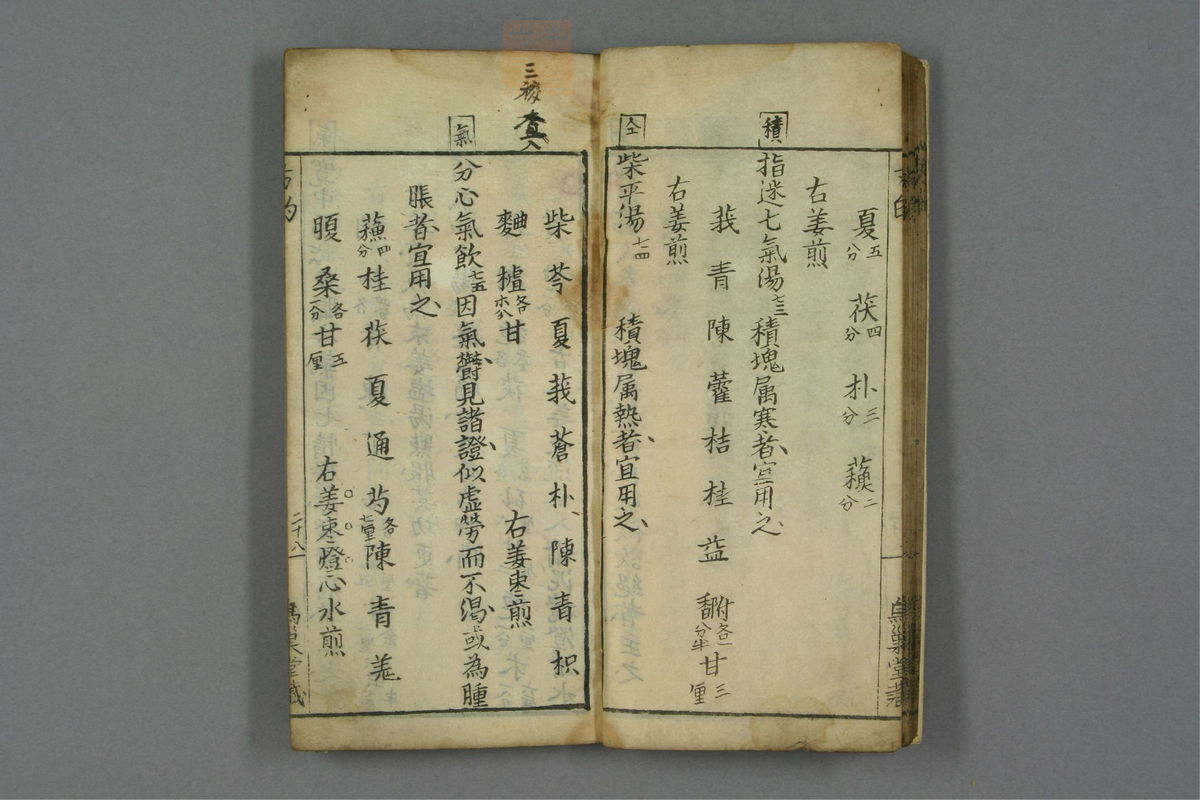 夏五分 茯四分 朴三分 蘓二分
右姜煎
積
指迷七氣湯七三 積塊属寒者宜用之
莪 青 陳 藿 桔 桂 益 香附各一分半 甘三厘
右姜煎
仝
柴平湯七四 積塊属熱者宜用之
三校
柴 芩 夏 莪 蒼 朴 陳 青 枳
麯 樝各 甘 右姜枣煎
氣
分心氣飲七五 因氣欝見諸證似虚勞而不渇或為腫
脹者宜用之
蘓四分 桂 茯 夏 通 芍各七厘 陳 青 羗
腹 桑各一分 甘五厘 右姜枣燈心水煎
二十八
烏巢堂藏